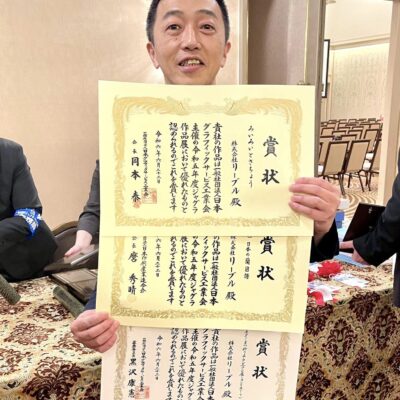 賞状
みいみいとさちょう
株式会社リーブル 殿
貴社の作品は一般社団法人日本
グラフィックサービス工業会
主催の令和五年度ジャグラ
作品展において優れたものと
認められたのでこれを表彰します
令和六年六月二十二日
会長 岡本 泰
賞状
日本の蘭目譜
株式会社リーブル 殿
貴社の作品は一般社団法人日本
グラフィックサービス工業会
主催の令和五年度ジャグラ
作品展において優れたものと
認められたのでこれを表彰します
令和六年六月二十二日
会長 麿 秀晴
賞状
株式会社リーブル 殿
貴社の作品は一般社団法人日本
グラフィックサービス工業会
主催の令和五年度ジャグラ
作品展において優れたものと
認められたのでこれを表彰します
令和六年六月二十二日
黒沢 康